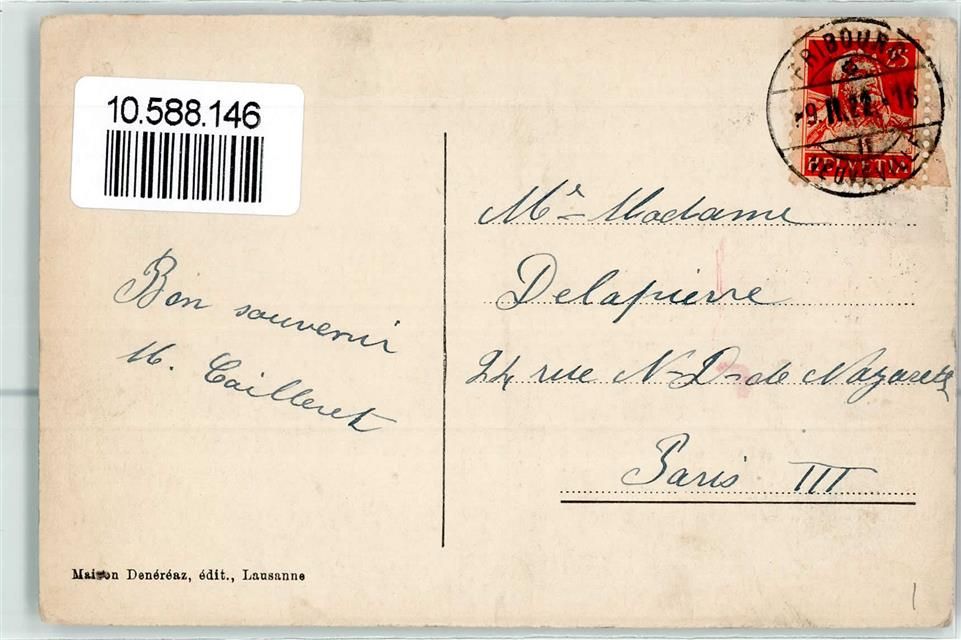 10.588.146
FRIBOURG
-9.II.22.-16
HELVETIA
Mr Madame
Delapierre
24 rue N-D-de Nazareth
Paris III
Bon souvenir
M. Cailleret
Maison Denéréaz, édit., Lausanne